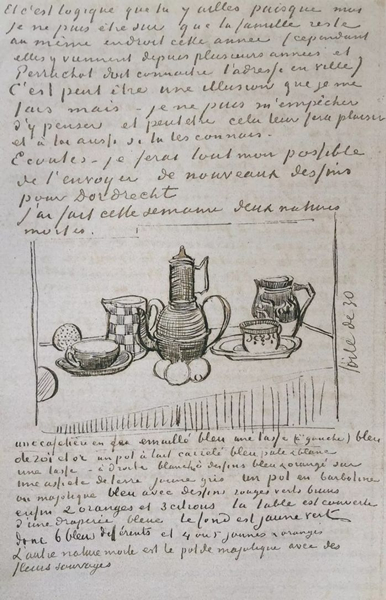 et c'est logique que tu y ailles puisque moi
je ne puis être sûr que la famille reste
au même endroit cette année (cependant
elles y viennent depuis plusieurs années et
Perruchot doit connaitre l'adresse en ville)
C'est peut être une illusion que je me
fais mais - je ne puis m'empêcher
d'y penser et peutetre cela leur fera plaisir
et à toi aussi si tu les connais.
Ecoutes - je ferai tout mon possible
de t'envoyer de nouveaux dessins
pour Dordrecht
J'ai fait cette semaine deux natures
mortes.
toile de 30
une cafetière en fer emaillé bleu une tasse (à gauche) bleu
de roi et or un pot à lait carrelé bleu pale & blanc
une tasse - à droite blanche à dessins bleu & orangé sur
une assiette de terre jaune gris un pot en barbotine
ou majolique bleu avec dessins rouges verts bruns
enfin 2 oranges et 3 citrons la table est couverte
d'une draperie bleue le fond est jaune vert
donc 6 bleu différents et 4 ou 5 jaunes & orangés
L'autre nature morte est le pot de majolique avec des
fleurs sauvages